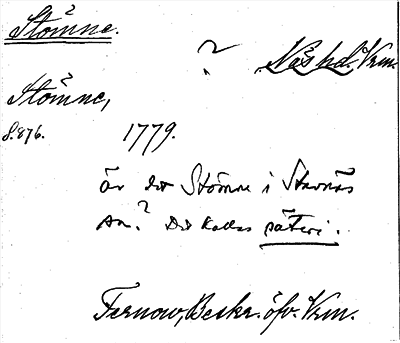 Stömne.
? Näs hd. Vrm.
Stömne,
S. 876. 1779.
är det Stömne i Stavnäs
sn.? Det kallas säteri.
Fernow, Beskr. öfv. Vrm.